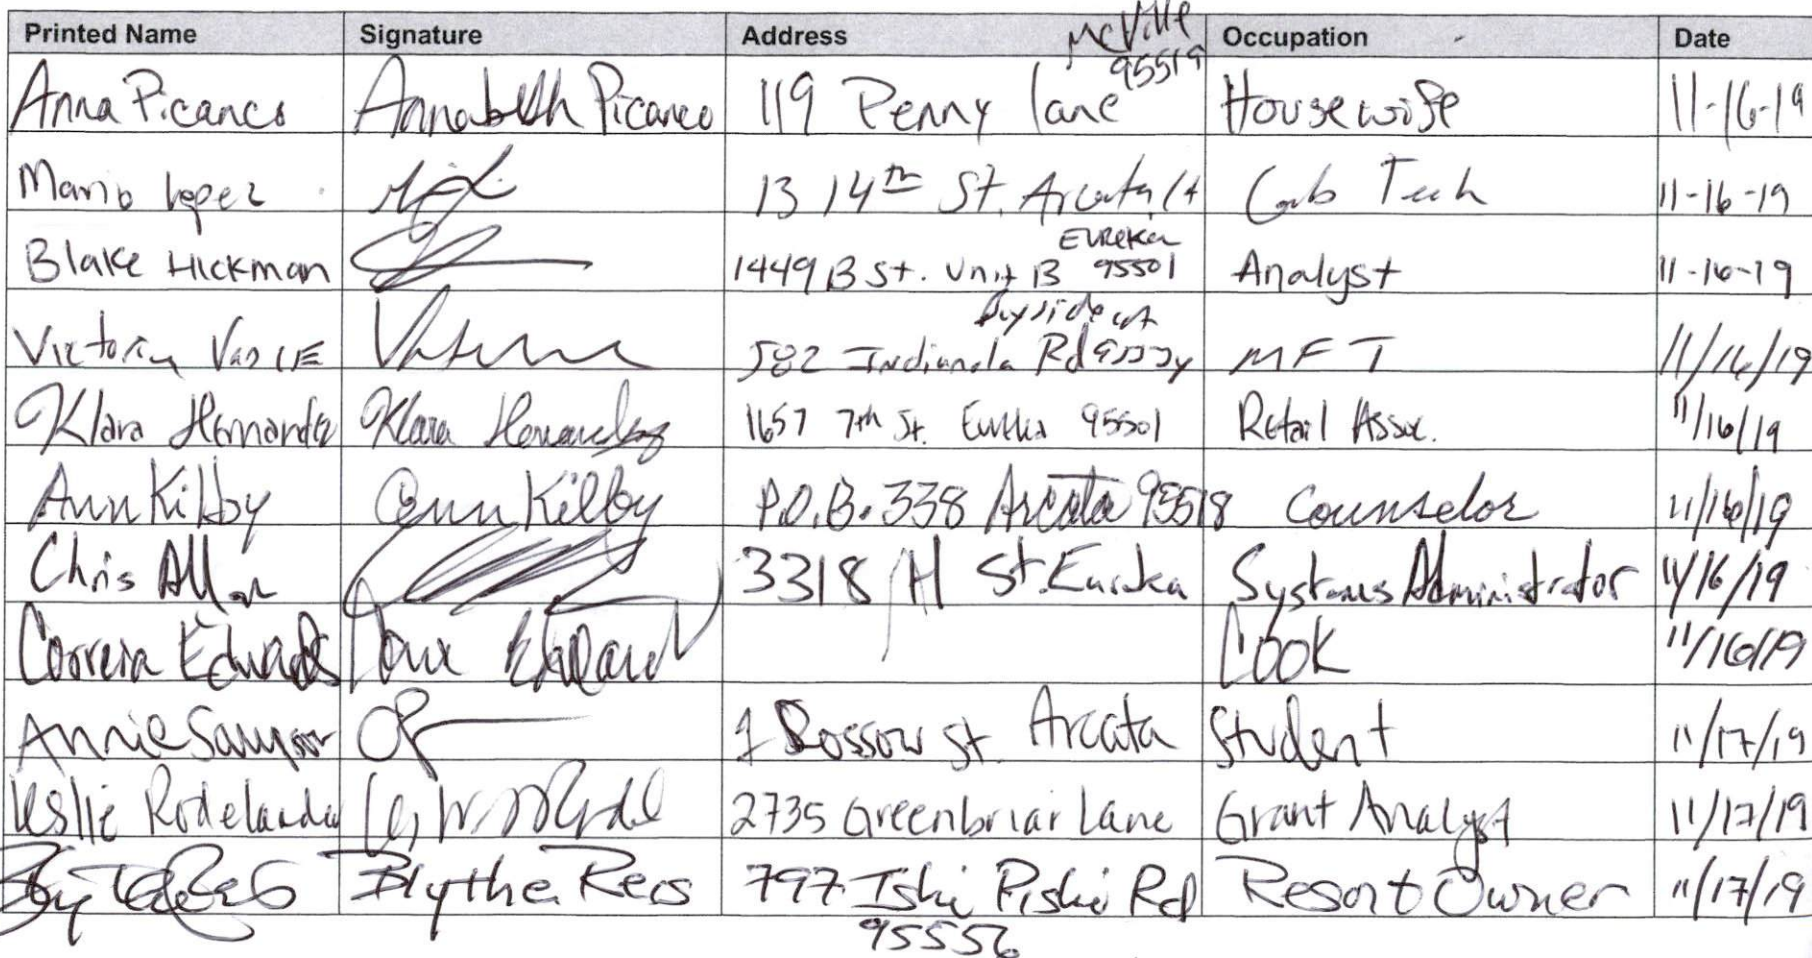 Printed Name Signature Address Occupation Date
McVille
95519
Anna Picanco Annabeth Picanco 119 Penny lane Housewife 11-16-19
Mario lopez 13 14th St. Arcata CA Tech 11-16-19
Eureka
Blake Hickman 1449 B St. Unit B 95501 Analyst 11-16-19
Bayside
Victoria 582 Indianola Rd MFT 11/16/19
Klara Hernandez Klara Hernandez 1657 7th St. Eureka 95501 Retail Assoc. 11/16/19
Ann Kilby Ann Kilby P.O.B. 338 Arcata 95518 Counselor 11/16/19
Chris Allan 3318 H St. Eureka Systems Administrator 11/16/19
Correia Edwards Cook 11/16/19
Annie St. Arcata Student 11/17/19
Leslie 2735 Greenbriar Lane Grant Analyst 11/17/19
Blythe Reis 797 Ishi Pishi Rd Resort Owner 11/17/19
95556